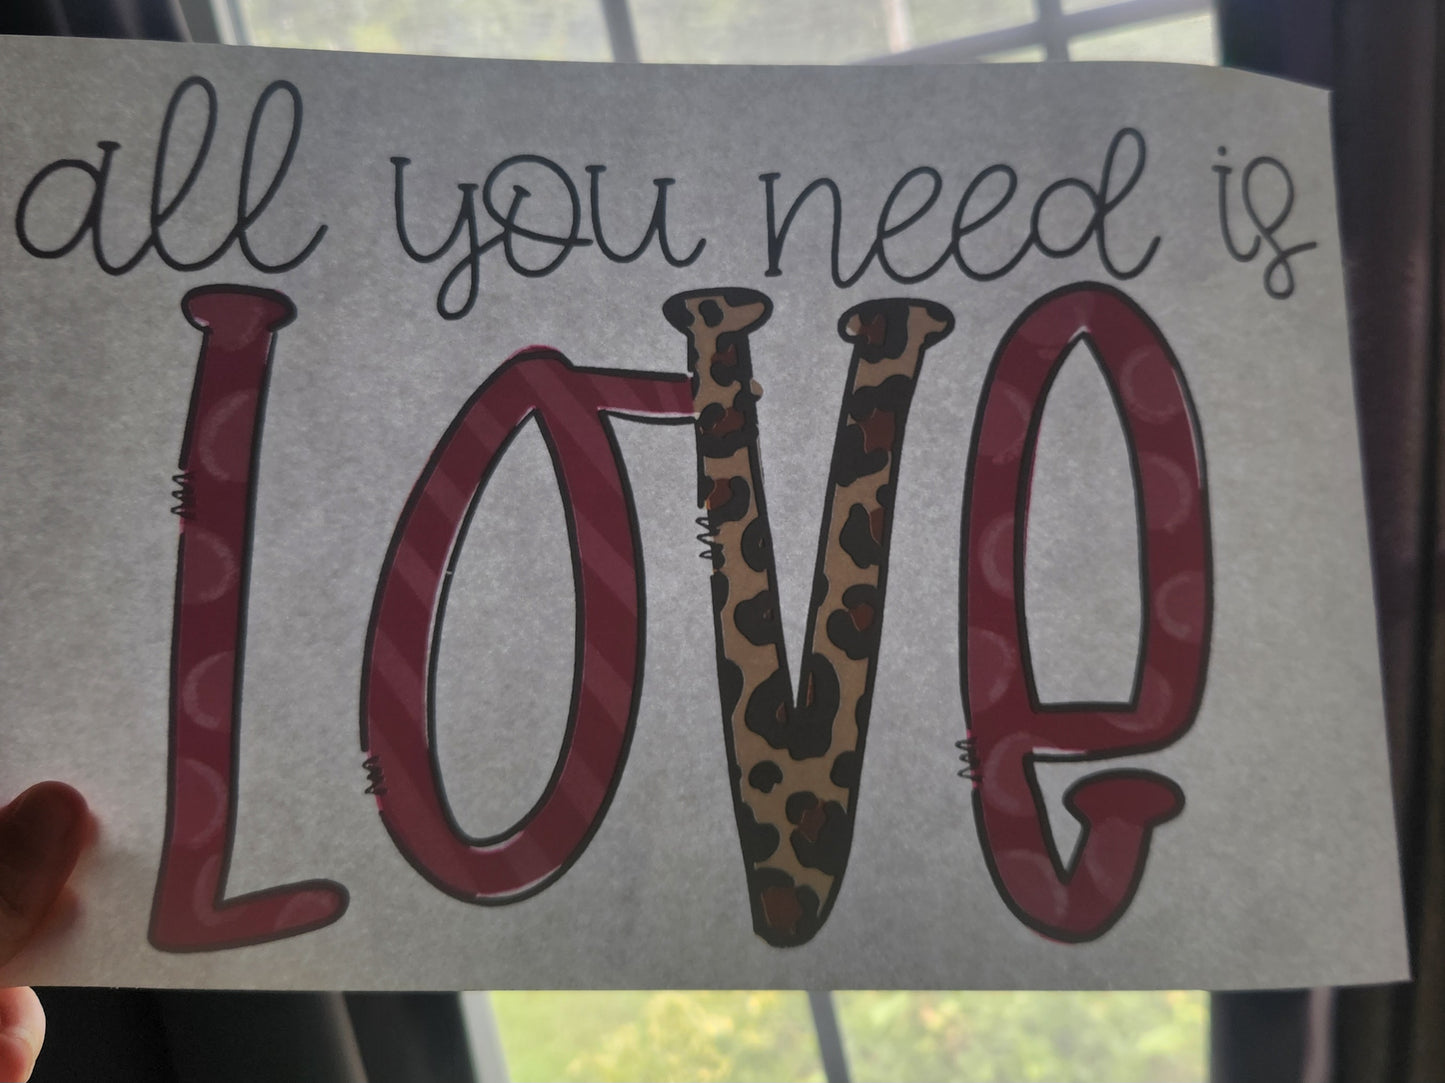 all you need is
Love